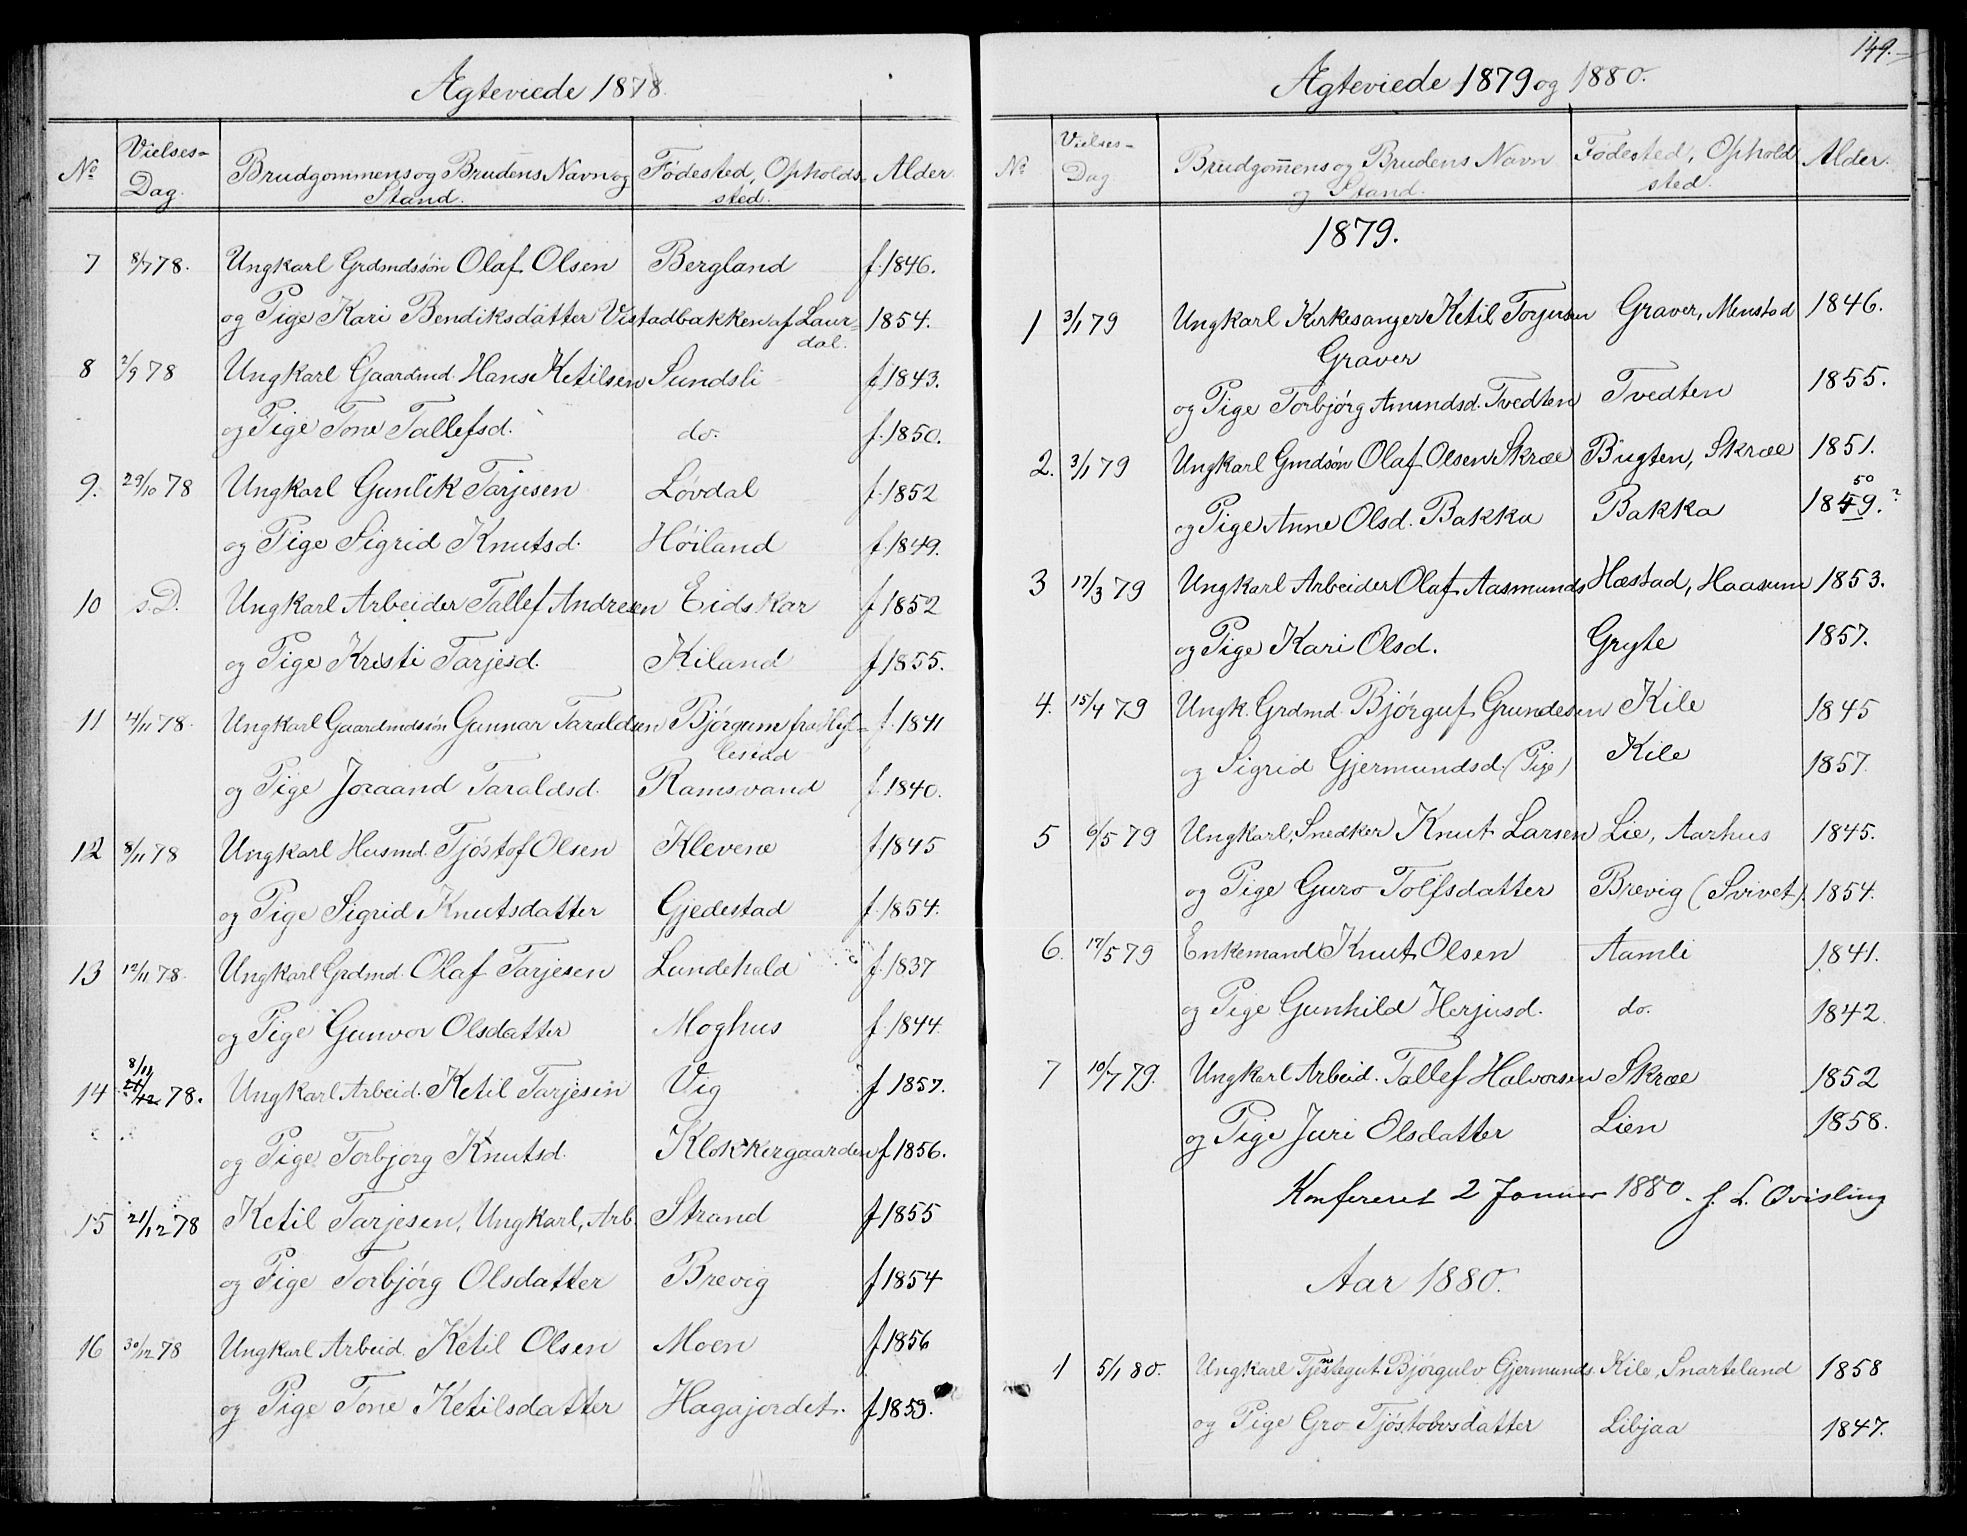 Ægteviede 1878.
No Vielses- Dag. Brudgommens og Brudens Navn og Stand. Fødested, Opholds- sted. Alder.
7 8/7 78. Ungkarl Grdmdssøn Olaf Olsen Bergland f. 1846.
og Pige Kari Bendiksdatter Vistadbakken af Laur- 1854.
dal.
8 2/9 78 Ungkarl Gaardmd. Hans Ketilsen Sundsli f. 1843.
og Pige Tone Tallefsd. do. f. 1850.
9. 29/10 78 Ungkarl Gunlik Tarjesen Løvdal f. 1852
og Pige Sigrid Knutsd. Høiland f. 1849.
10 s. D. Ungkarl Arbeider Tallef Andresen Eidskar f 1852
og Pige Kristi Tarjesd. Kiland f 1855.
11 4/11 78. Ungkarl Gaardmdssøn Gunnar Taraldsen Bjørgum fra Hyl- f. 1841
lestad
og Pige Joraand Taraldsd. Ramsvand f. 1840.
12 8/11 78 Ungkarl Husmd. Tjøstof Olsen Klevene f 1845
og Pige Sigrid Knutsdatter Gjedestad f. 1854.
13 12/11 78. Ungkarl Grdmd. Olaf Tarjesen Lundehald f. 1837
og Pige Gunvor Olsdatter Moghus f. 1844.
8/11
14 21/12 78. Ungkarl Arbeid. Ketil Tarjesen Vig f 1857.
og Pige Torbjørg Knutsd. Klokkergaarden f 1856.
15 21/12 78 Ketil Tarjesen, Ungkarl, Arb. Strand f 1855
og Pige Torbjørg Olsdatter Brevig f 1854
16 30/12 78 Ungkarl Arbeid. Ketil Olsen Moen f 1856
og Pige Tone Ketilsdatter Hagajordet. f 1859.
149.
Ægteviede 1879 og 1880.
No Vielses- Dag Brudgom̅ens og Brudens Navn og Stand. Fødested, Ophold sted. Alder.
1879.
1 3/1 79 Ungkarl Kirkesanger Ketil Torjusen Graver, Menstad 1846.
Graver
og Pige Torbjørg Amundsd. Tvedten Tvedten 1855.
2. 3/1 79 Ungkarl Gmdsøn Olaf Olsen Skræe Bugten, Skræe 1851.
50
og Pige Anne Olsd. Bakka Bakka 1849.?
3 17/3 79 Ungkarl Arbeider Olaf Aasmunds Hæstad, Haasum 1853.
og Pige Kari Olsd. Gryte 1857.
4. 15/4 79 Ungk. Grdmd. Bjørguf Grundesen Kile 1845
og Sigrid Gjermundsd. (Pige) Kile 1857.
5 6/5 79 Ungkarl, Snedker Knut Larsen Lie, Aarhus 1845.
og Pige Guro Tolfsdatter Brevig (Svivet) 1854.
6. 17/5 79 Enkemand Knut Olsen Aamli 1841.
og Pige Gunhild Herjusd. do. 1842.
7 10/7 79. Ungkarl Arbeid. Tallef Halvorsen Skræe 1852
og Pige Juri Olsdatter Lien 1858.
Konfereret 2 Januar 1880. J. L. Qvisling
Aar 1880.
1 5/1 80. Ungkarl Tjenstegut Bjørgulv Gjermunds. Kile, Snarteland 1858
og Pige Gro Tjøstolvsdatter Libjaa 1847.